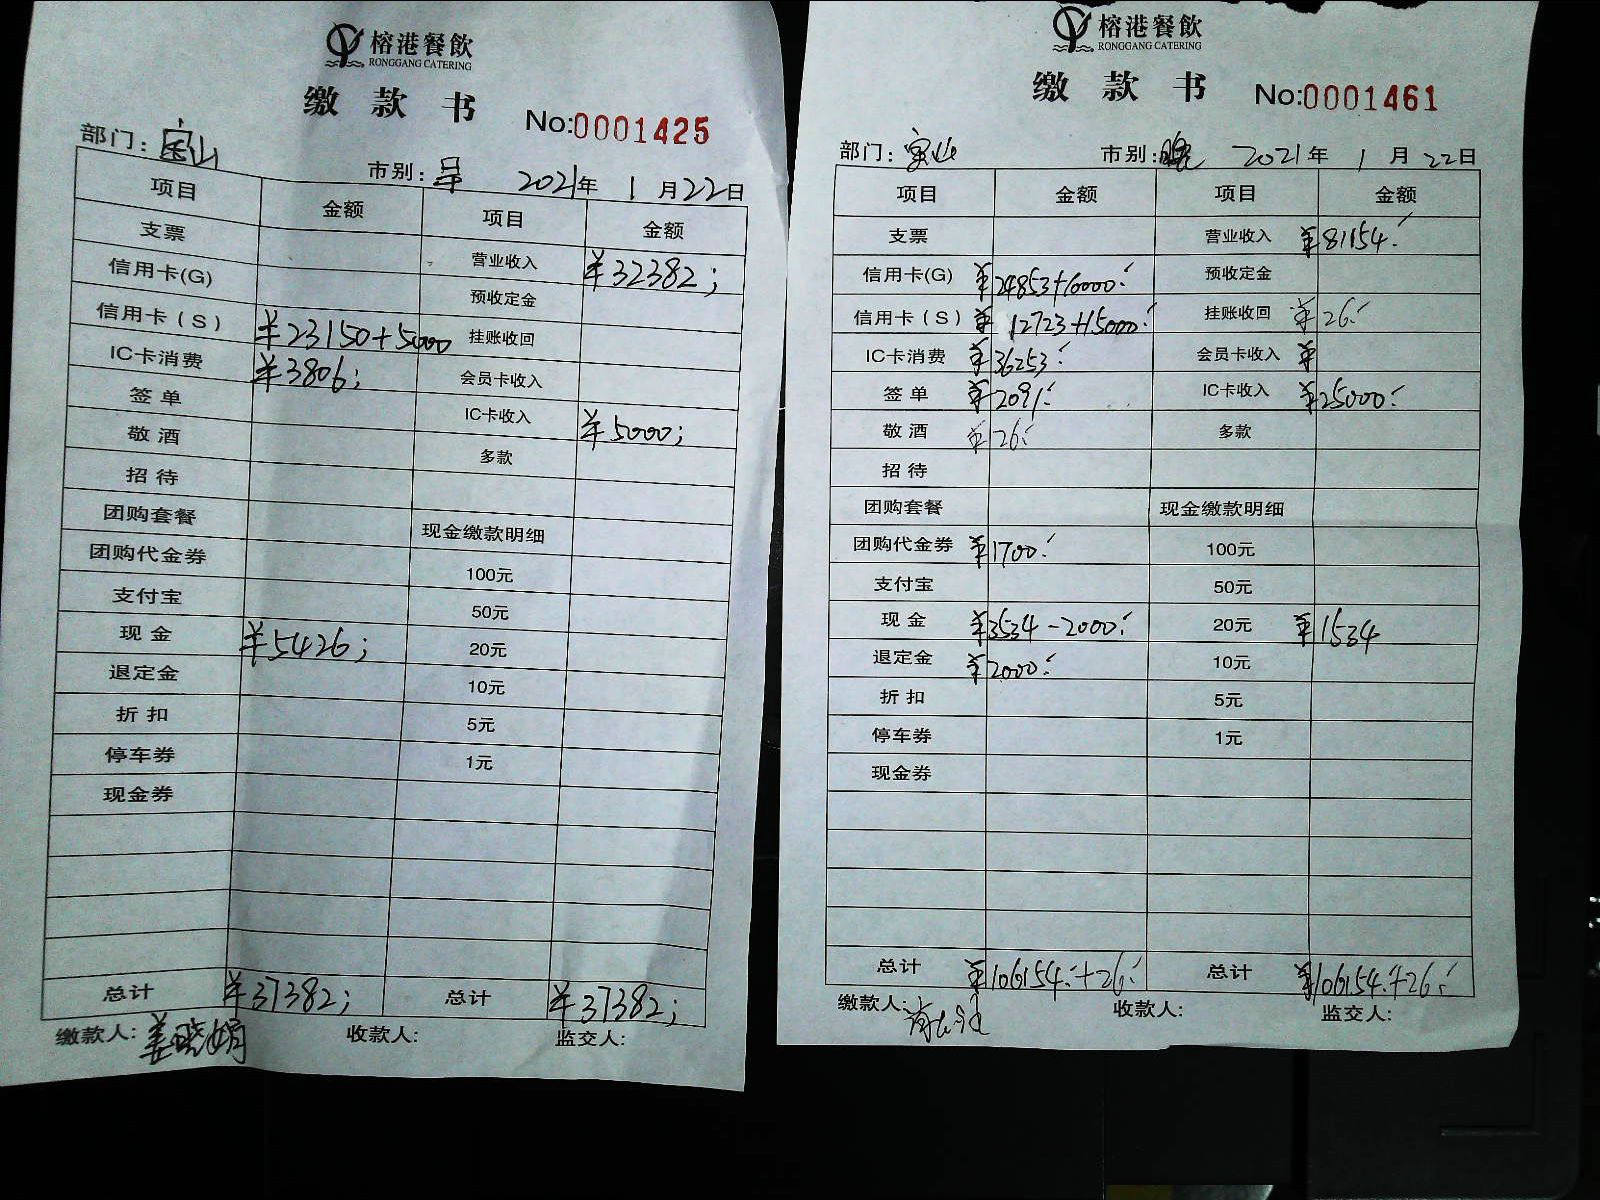 榕港餐飲
RONGGANG CATERING
缴款书 No:0001425
部门：宝山 市别：早 2021年1月22日
项目 金额 项目 金额
支票 营业收入 ¥32382;
信用卡(G) 预收定金
信用卡(S) ¥23150+5000 挂账收回
IC卡消费 ¥3806; 会员卡收入
签单 IC卡收入 ¥5000;
敬酒 多款
招待
团购套餐 现金缴款明细
团购代金券 100元
支付宝 50元
现金 ¥5426; 20元
退定金 10元
折扣 5元
停车券 1元
现金券
总计 ¥37382; 总计 ¥37382;
缴款人: 姜晓娟 收款人: 监交人:
榕港餐飲
RONGGANG CATERING
缴款书 No:0001461
部门：宝山 市别：晚 2021年1月22日
项目 金额 项目 金额
支票 营业收入 ¥81154.
信用卡(G) ¥24853+10000. 预收定金
信用卡(S) ¥12723+15000. 挂账收回 ¥26.
IC卡消费 ¥36253. 会员卡收入 ¥
签单 ¥2091. IC卡收入 ¥25000.
敬酒 ¥26. 多款
招待
团购套餐 现金缴款明细
团购代金券 ¥1700. 100元
支付宝 50元
现金 ¥3534-2000. 20元 ¥1534
退定金 ¥2000. 10元
折扣 5元
停车券 1元
现金券
总计 ¥106154.+26. 总计 ¥106154.+26.
缴款人: 收款人: 监交人: